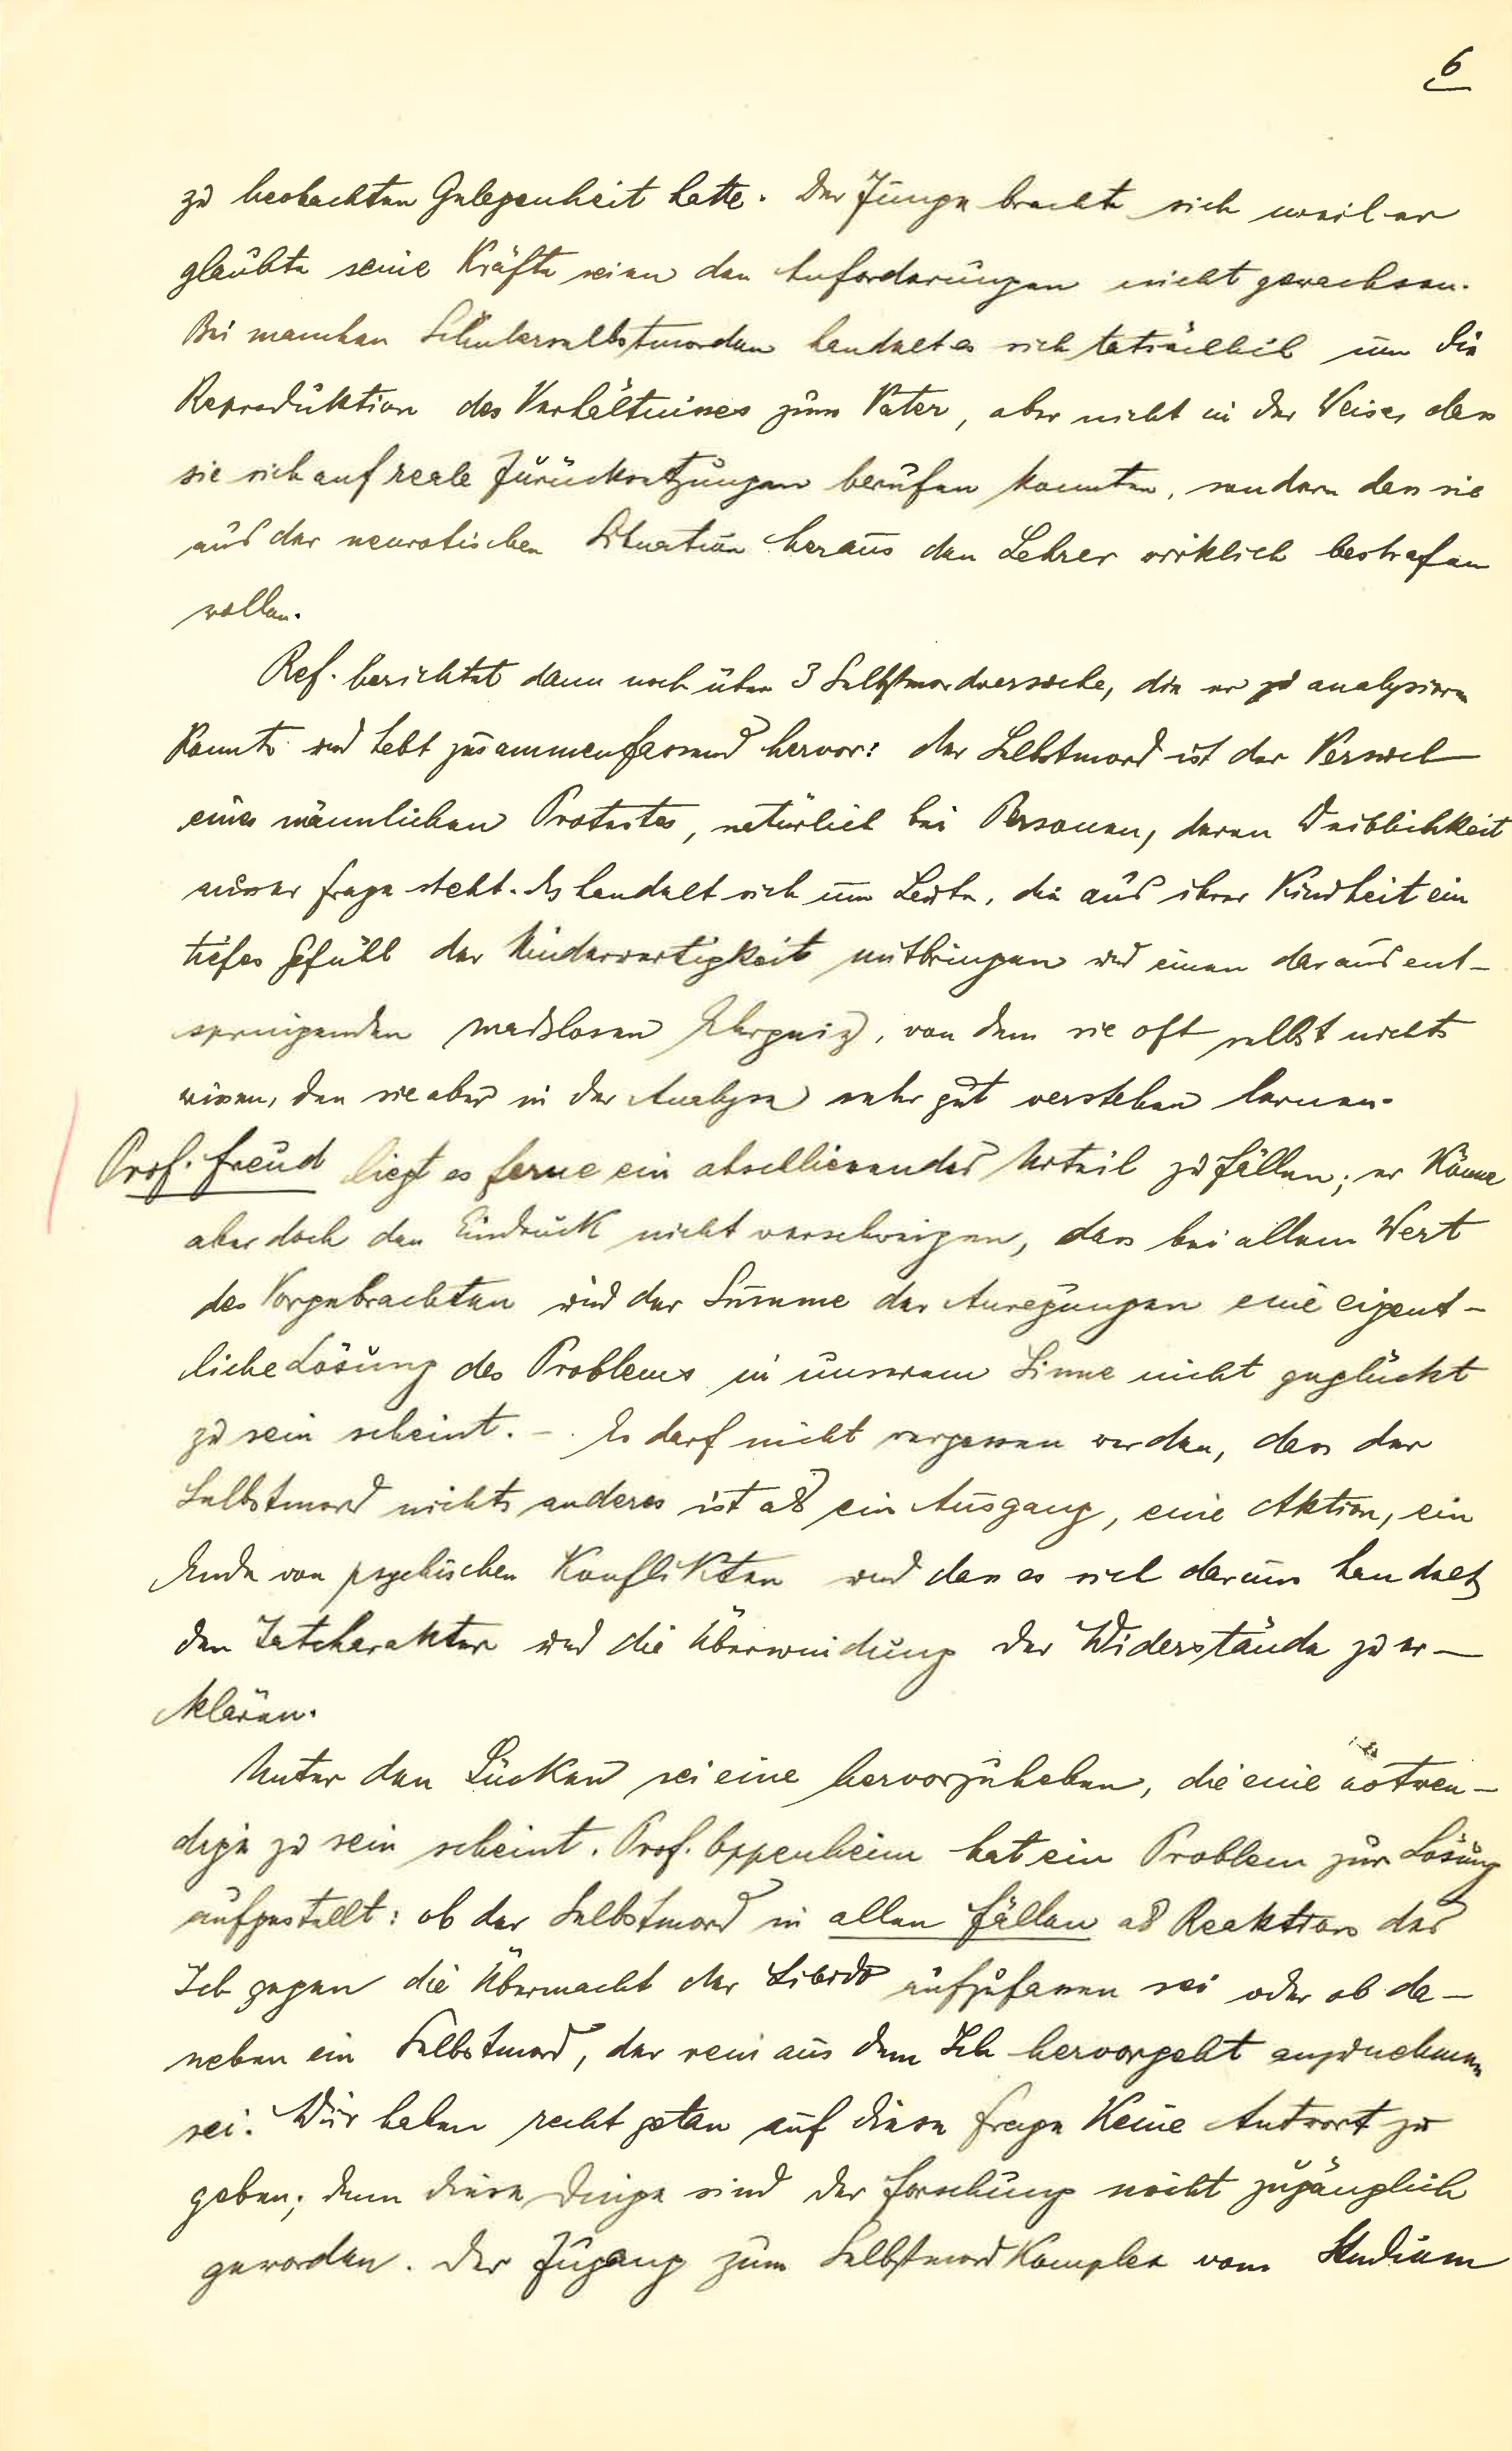 6
zu beobachten Gelegenheit hatte. Der Junge brachte sich weil er
glaubte seine Kräfte seien den Anforderungen nicht gewachsen.
Bei manchen Schülerselbstmorden handelt es sich tatsächlich um die
Reproduktion des Verhältnisses zum Vater, aber nicht in der Weise, dass
sie sich auf reale Zurücksetzungen berufen konnten, sondern dass sie
aus der neurotischen Situation heraus den Lehrer wirklich bestrafen
wollen.
Ref. berichtet dann noch über 3 Selbstmordversuche, die er zu analysieren
konnte und hebt zusammenfassend hervor: der Selbstmord ist der Versuch
eines männlichen Protestes, natürlich bei Personen, deren Weiblichkeit
ausser Frage steht. Es handelt sich um Leute, die aus ihrer Kindheit ein
tiefes Gefühl der Minderwertigkeit mitbringen und einen daraus ent-
springenden masslosen Ehrgeiz, von dem sie oft selbst nichts
wissen, den sie aber in der Analyse sehr gut verstehen lernen.
Prof. Freud liegt es ferne ein abschliessendes Urteil zu fällen; er könne
aber doch den Eindruck nicht verschweigen, dass bei allem Wert
des Vorgebrachten und der Summe der Anregungen eine eigent-
liche Lösung des Problems in unserem Sinne nicht geglückt
zu sein scheint. - Es darf nicht vergessen werden, dass der
Selbstmord nichts anderes ist als ein Ausgang, eine Aktion, ein
Ende von psychischen Konflikten und dass es sich darum handelt,
den Tatcharakter und die Überwindung der Widerstände zu er-
klären.
Unter den Lücken sei eine hervorzuheben, die eine notwen-
dige zu sein scheint. Prof. Oppenheim hat ein Problem zur Lösung
aufgestellt: ob der Selbstmord in allen Fällen als Reaktion des
Ich gegen die Übermacht der Libido aufzufassen sei oder ob da-
neben ein Selbstmord, der rein aus dem Ich hervorgeht anzunehmen
sei. Wir haben recht getan auf diese Frage keine Antwort zu
geben; denn diese Dinge sind der Forschung nicht zugänglich
geworden. Der Zugang zum Selbstmordkomplex vom Studium